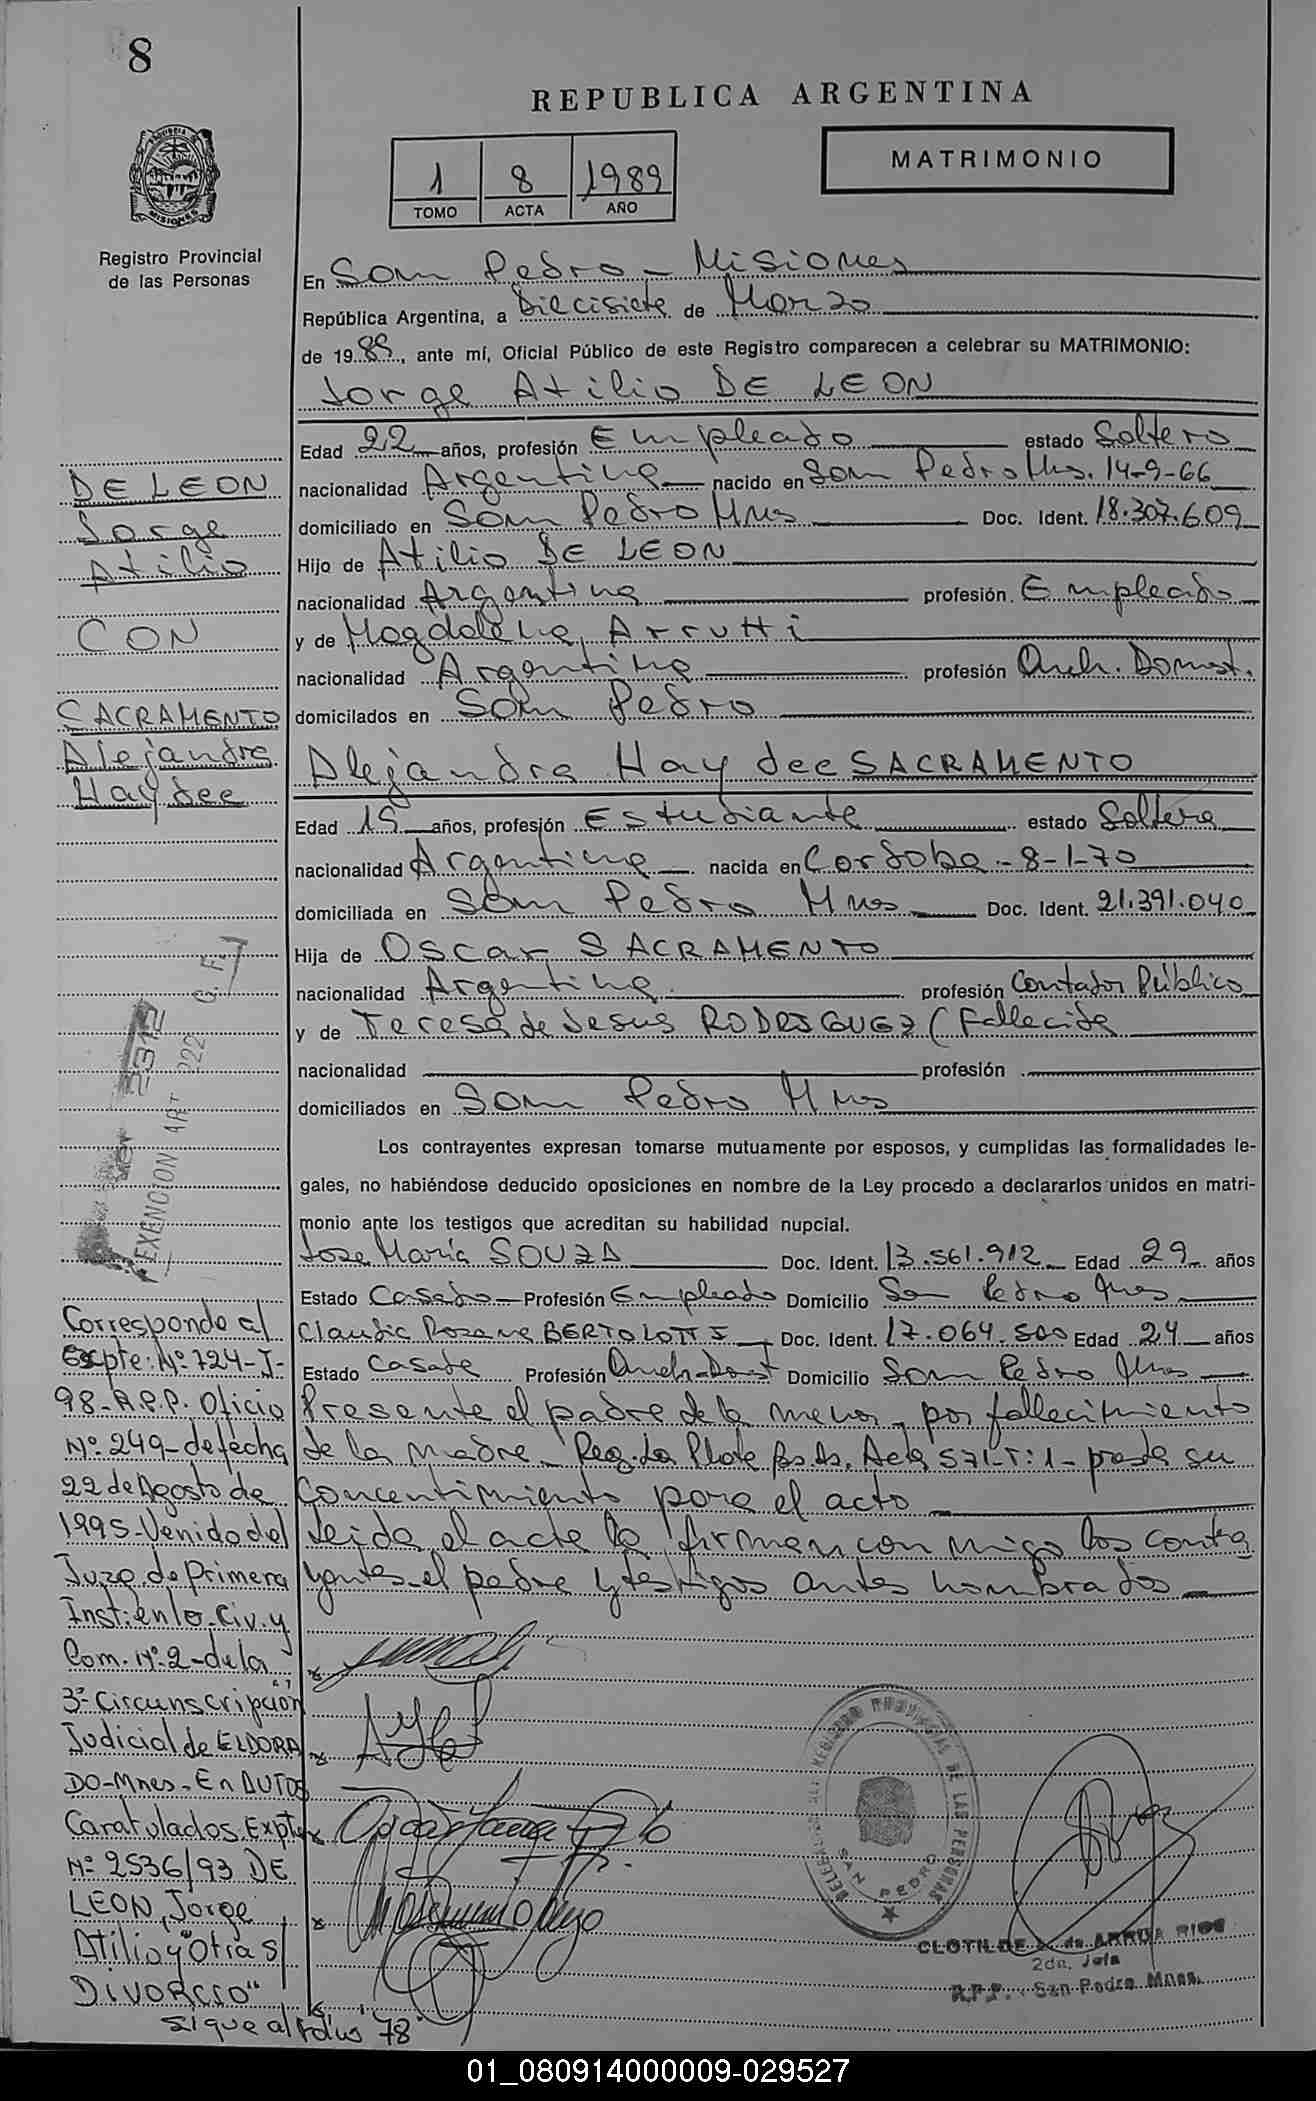 8
REPUBLICA ARGENTINA
MISIONES
Registro Provincial
de las Personas
1 8 1989
TOMO ACTA AÑO
MATRIMONIO
En San Pedro - Misiones
República Argentina, a Diecisiete de Marzo
de 1989, ante mí, Oficial Público de este Registro comparecen a celebrar su MATRIMONIO:
Jorge Atilio DE LEON
Edad 22 años, profesión Empleado estado Soltero
nacionalidad Argentina nacido en San Pedro Mns. 14-9-66
domiciliado en San Pedro Mnes Doc. Ident. 18.307.609
Hijo de Atilio DE LEON
nacionalidad Argentina profesión Empleado
y de Magdalena Arrutti
nacionalidad Argentina profesión Queh. Domest.
domicilados en San Pedro
Alejandra Haydee SACRAMENTO
Edad 19 años, profesión Estudiante estado Soltera
nacionalidad Argentina nacida en Cordoba - 8-1-70
domiciliada en San Pedro Mnes Doc. Ident. 21.391.040
Hija de Oscar SACRAMENTO
nacionalidad Argentina profesión Contador Público
y de Teresa de Jesus RODRIGUEZ (Fallecida
nacionalidad profesión
domiciliados en San Pedro Mnes
Los contrayentes expresan tomarse mutuamente por esposos, y cumplidas las formalidades le-
gales, no habiéndose deducido oposiciones en nombre de la Ley procedo a declararlos unidos en matri-
monio ante los testigos que acreditan su habilidad nupcial.
Jose María SOUZA Doc. Ident. 13.561.912 Edad 29 años
Estado Casado Profesión Empleado Domicilio San Pedro Mnes
Claudia Rosana BERTOLOTTI Doc. Ident. 17.064.500 Edad 24 años
Estado Casada Profesión Queh-Dost Domicilio San Pedro Mnes
Presente el padre de la menor, por fallecimiento
de la madre - Reg. La Plata Bs. As. Acta 571-T: 1 - presta su
Concentimiento para el acto
Leida el acta la firman con migo los contra
yentes el padre y testigos antes nombrados
DE LEON
Jorge
Atilio
CON
SACRAMENTO
Alejandra
Haydee
EXENCION ART 222 C. F.
Corresponde al
Expte: Nº 724-J-
98-R.P.P. Oficio
Nº 249-de fecha
22 de Agosto de
1995-Venido del
Juzg. de Primera
Inst: en lo Civ. y
Com. Nº 2-de la
3ª Circunscripción
Judicial de ELDORA
DO-Mnes-En AUTOS
Caratulados Expte
Nº 2536/93 DE
LEON, Jorge
Atilio y Otra s/
DIVORCIO"
sigue al Folio 78
DELEGACION DEL REGISTRO PROVINCIAL DE LAS PERSONAS
SAN PEDRO
CLOTILDE de ARRUA RIOS
2da. Jefa
R.P.P. San Pedro Mnes.
01_080914000009-029527